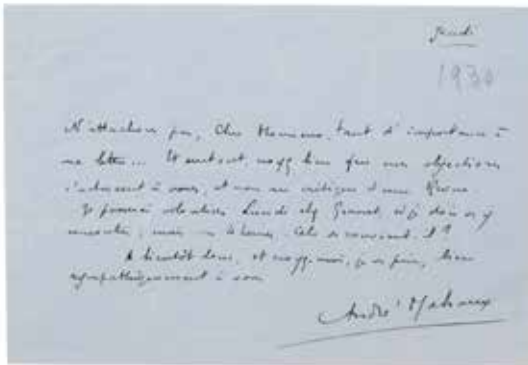 Jeudi
1930
N'attachons pas, Cher Monsieur, tant d'importance à
ma lettre... Et surtout, croyez bien que mes objections
s'adressent à vous, et non au critique d'une Revue.
Je passerai volontiers Lundi chez
mais
A bientôt donc, et croyez-moi, je vous prie, bien
sympathiquement à vous
André Malraux